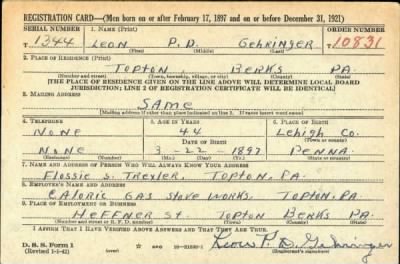 REGISTRATION CARD—(Men born on or after February 17, 1897 and on or before December 31, 1921)
SERIAL NUMBER 1. NAME (Print) ORDER NUMBER
T 1344 Leon P.D. Gehringer T 10831
(First) (Middle) (Last)
2. PLACE OF RESIDENCE (Print)
Topton Berks PA.
(Number and street) (Town, township, village, or city) (County) (State)
[THE PLACE OF RESIDENCE GIVEN ON THE LINE ABOVE WILL DETERMINE LOCAL BOARD
JURISDICTION; LINE 2 OF REGISTRATION CERTIFICATE WILL BE IDENTICAL]
3. MAILING ADDRESS
SAME
[Mailing address if other than place indicated on line 2. If same insert word same]
4. TELEPHONE 5. AGE IN YEARS 6. PLACE OF BIRTH
None 44 Lehigh Co.
DATE OF BIRTH
None 3-22-1897 Penna.
(Mo.) (Day) (Yr.)
7. NAME AND ADDRESS OF PERSON WHO WILL ALWAYS KNOW YOUR ADDRESS
Flossie S. Trexler, Topton, Pa.
8. EMPLOYER'S NAME AND ADDRESS
Caloric Gas Stove Works, Topton, Pa.
9. PLACE OF EMPLOYMENT OR BUSINESS
Heffner St. Topton Berks Pa
(Number and street or R. F. D. number) (Town) (County) (State)
I AFFIRM THAT I HAVE VERIFIED ABOVE ANSWERS AND THAT THEY ARE TRUE.
D. S. S. Form 1
(Revised 1-1-42) (over) Leon P. D. Gehringer
(Registrant's signature)